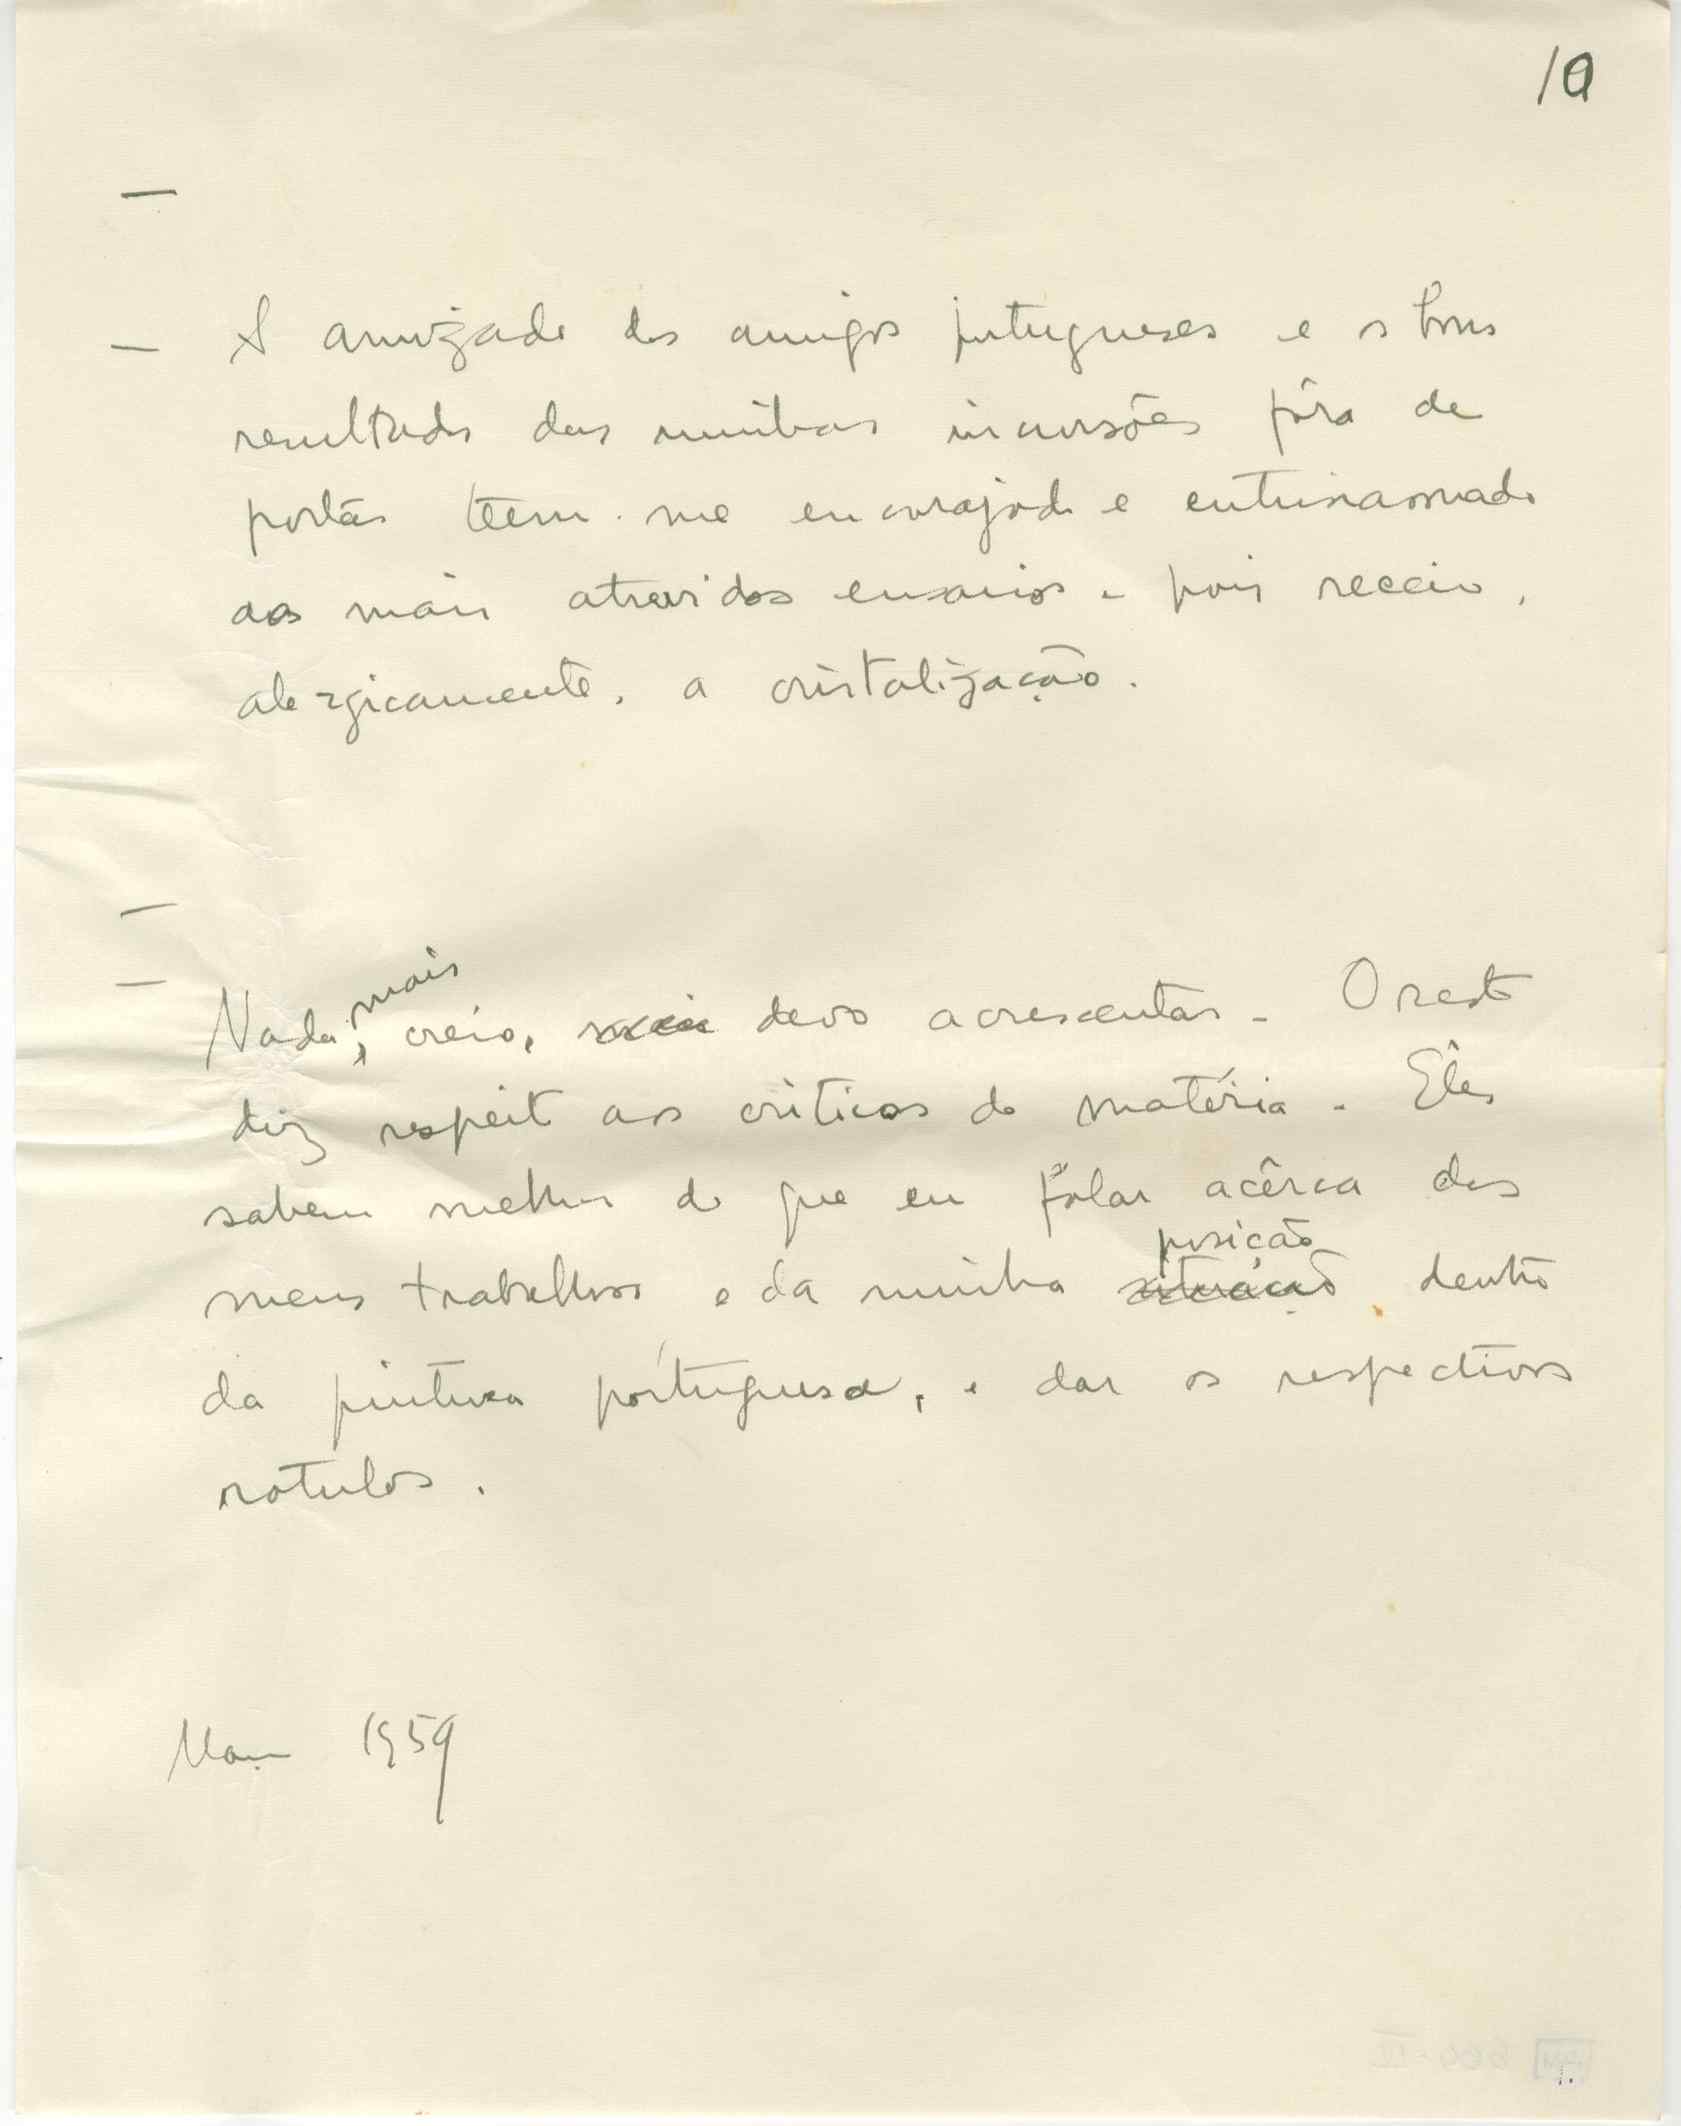 10
—
— A amizade dos amigos portugueses e os bons
resultados das minhas incursões fóra de
portas teem-me encorajado e entusiasmado
aos mais atrevidos ensaios - pois receio,
alergicamente, a cristalização.
—
— mais
Nada, creio, devo acrescentar. O resto
diz respeito aos criticos da matéria. Êles
sabem melhor do que eu falar acêrca dos
posição
meus trabalhos e da minha situação dentro
da pintura portuguesa, e dar os respectivos
rotulos.
1959